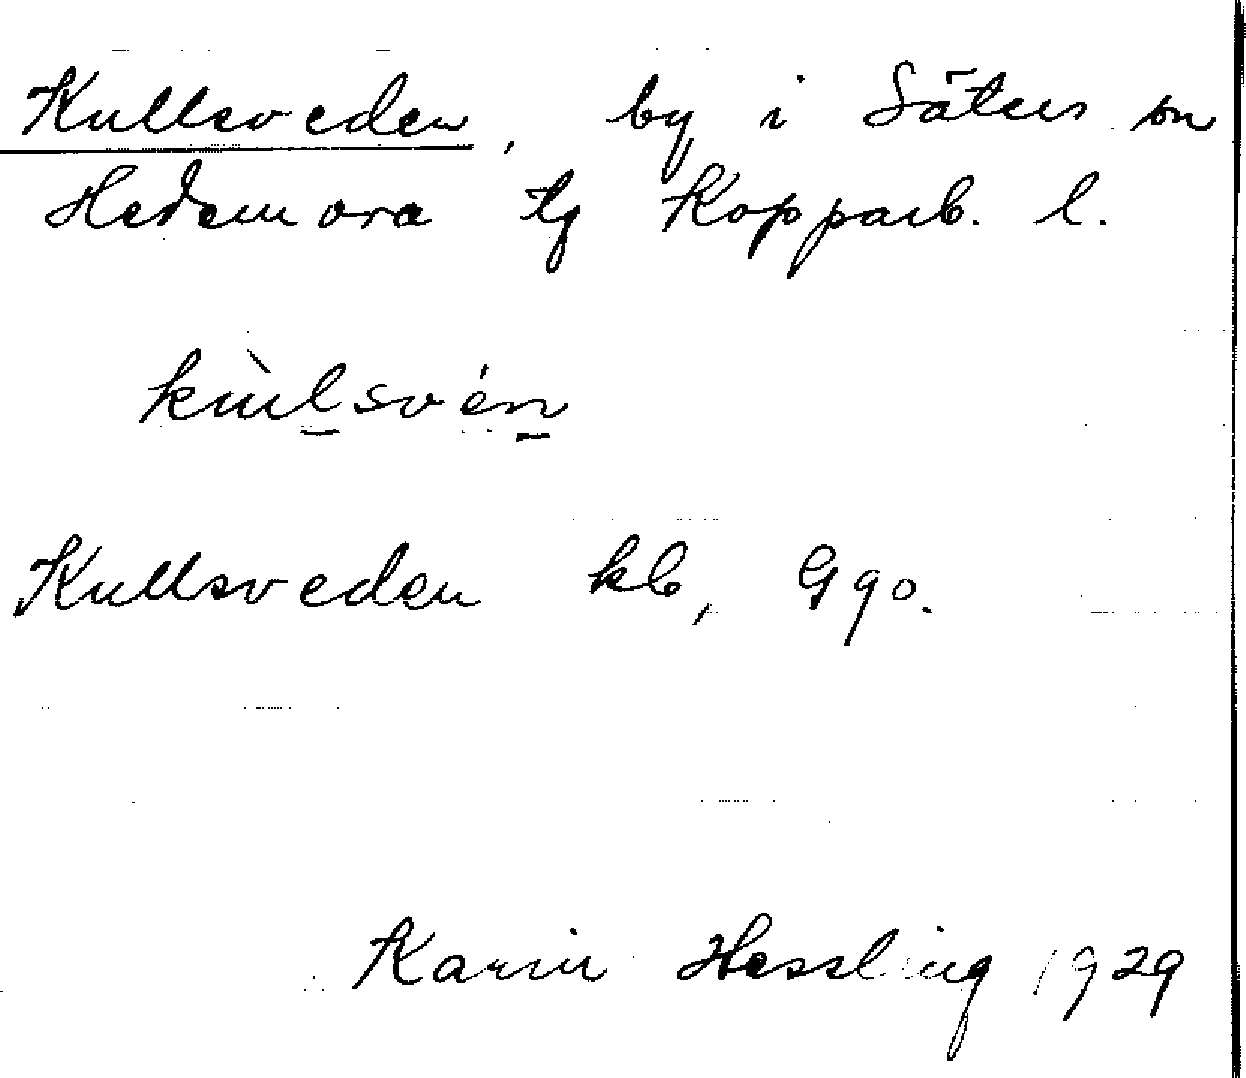 Kullsveden, by i Säters sn
Hedemora tg Kopparb. l.
kùlsvén
Kullsveden kb, Ggo.
Karin Hessling 1929